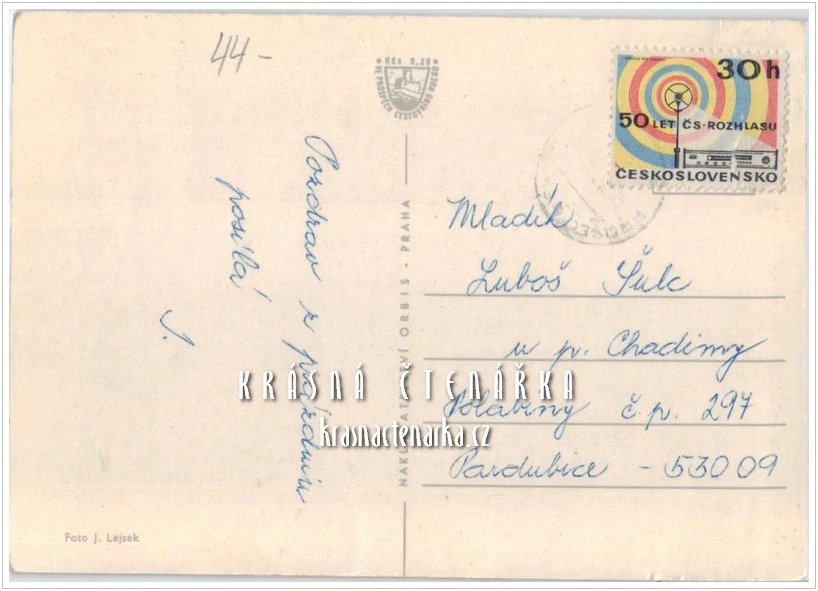 44-
Kčs 0,20
VE PROSPĚCH CESTOVNÍHO RUCHU
30h
50 LET ČS. ROZHLASU
ČESKOSLOVENSKO
Pozdrav z prázdnin
posílá
J.
NAKLADATELSTVÍ ORBIS - PRAHA
Mladík
Luboš Šulc
u p. Chadimy
Polabiny č.p. 297
Pardubice - 53009
KRÁSNÁ ČTENÁŘKA
krasnactenarka.cz
Foto J. Lejsek